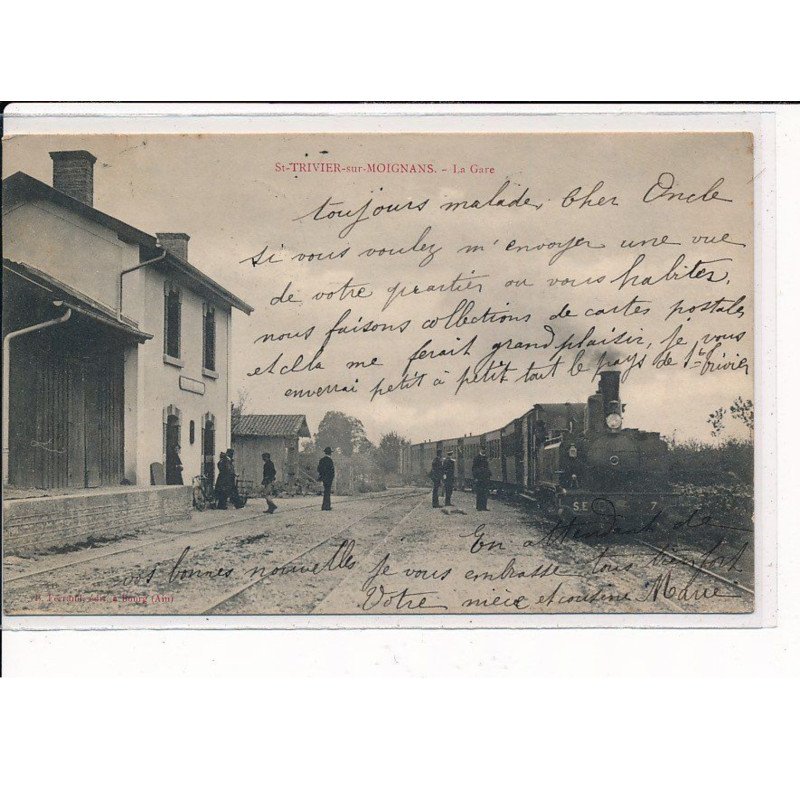 St-TRIVIER-sur-MOIGNANS. - La Gare
toujours malade, Cher Oncle
si vous voulez m'envoyer une vue
de votre quartier ou vous habitez,
nous faisons collections de cartes postales
et cela me ferait grand plaisir, je vous
enverrai petit à petit tout le pays de St Trivier
SE 7
En attendant de
vos bonnes nouvelles je vous embrasse tous bien fort
Votre nièce et cousine Marie
édit. à Bourg (Ain)